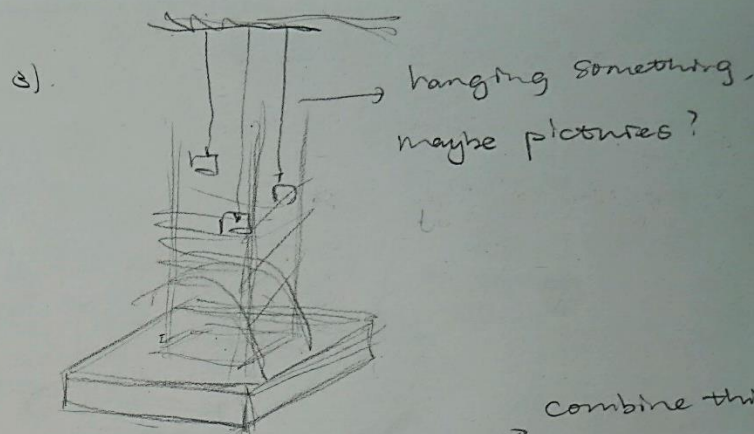 3).
hanging something.
maybe pictures?
combine thi